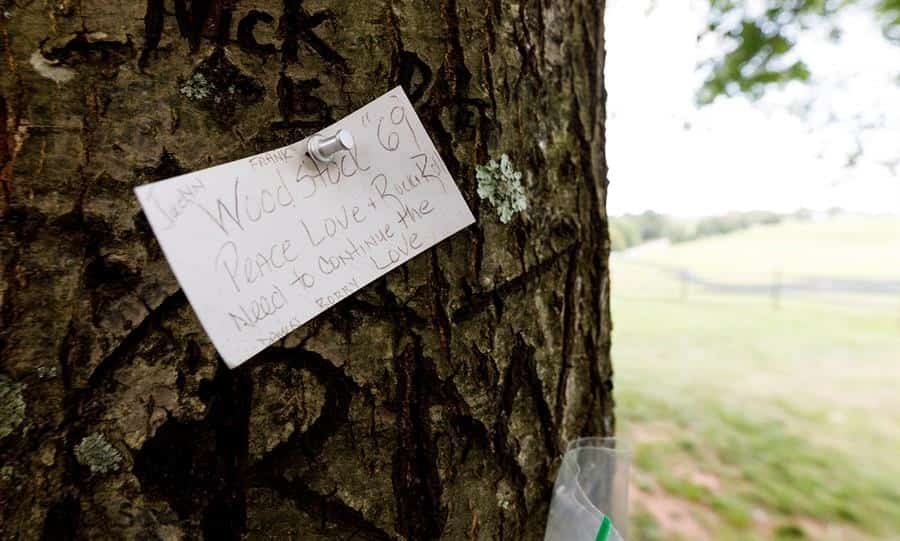 NICK
FRANK
JoANN
WoodStock "69"
PEACE LOVE + Rock & Roll
Need to continue the
LOVE
RORRY